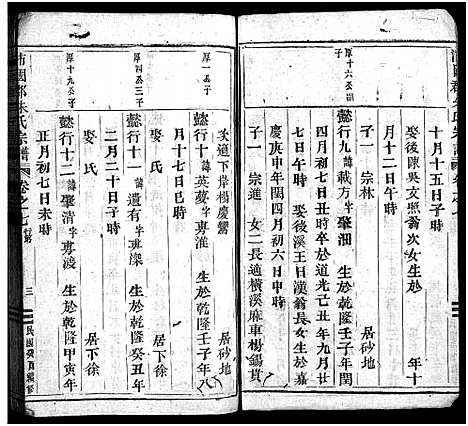 十月十五日子時
娶後陳吳文照翁次女生於　年十
十二月二十日午時
子一　宗林　居砂地
厚十六公三子
懿行九　諱載方　字聖洄　生於乾隆壬子年閏
四月初七日丑時卒於道光己丑年九月廿
九日午時　娶後溪王日漢翁長女生於嘉
慶庚申年閏四月初六日申時
子一　宗進　女二長適橫溪麻車楊錫貫
次適下岸楊慶鸞　居砂地
厚一公子
懿行十　諱英夢　字專淮　生於乾隆壬子年八
月十七日亥時
娶　氏　居下徐
厚四公三子
懿行十一　諱有　字專濚　生於乾隆癸丑年
二月二十日子時
娶　氏　居下徐
厚十九公子
懿行十二　諱聖清　字專渡　生於乾隆甲寅年
正月初七日未時
沛國郡朱氏宗譜　卷之七　三　民國癸亥續修